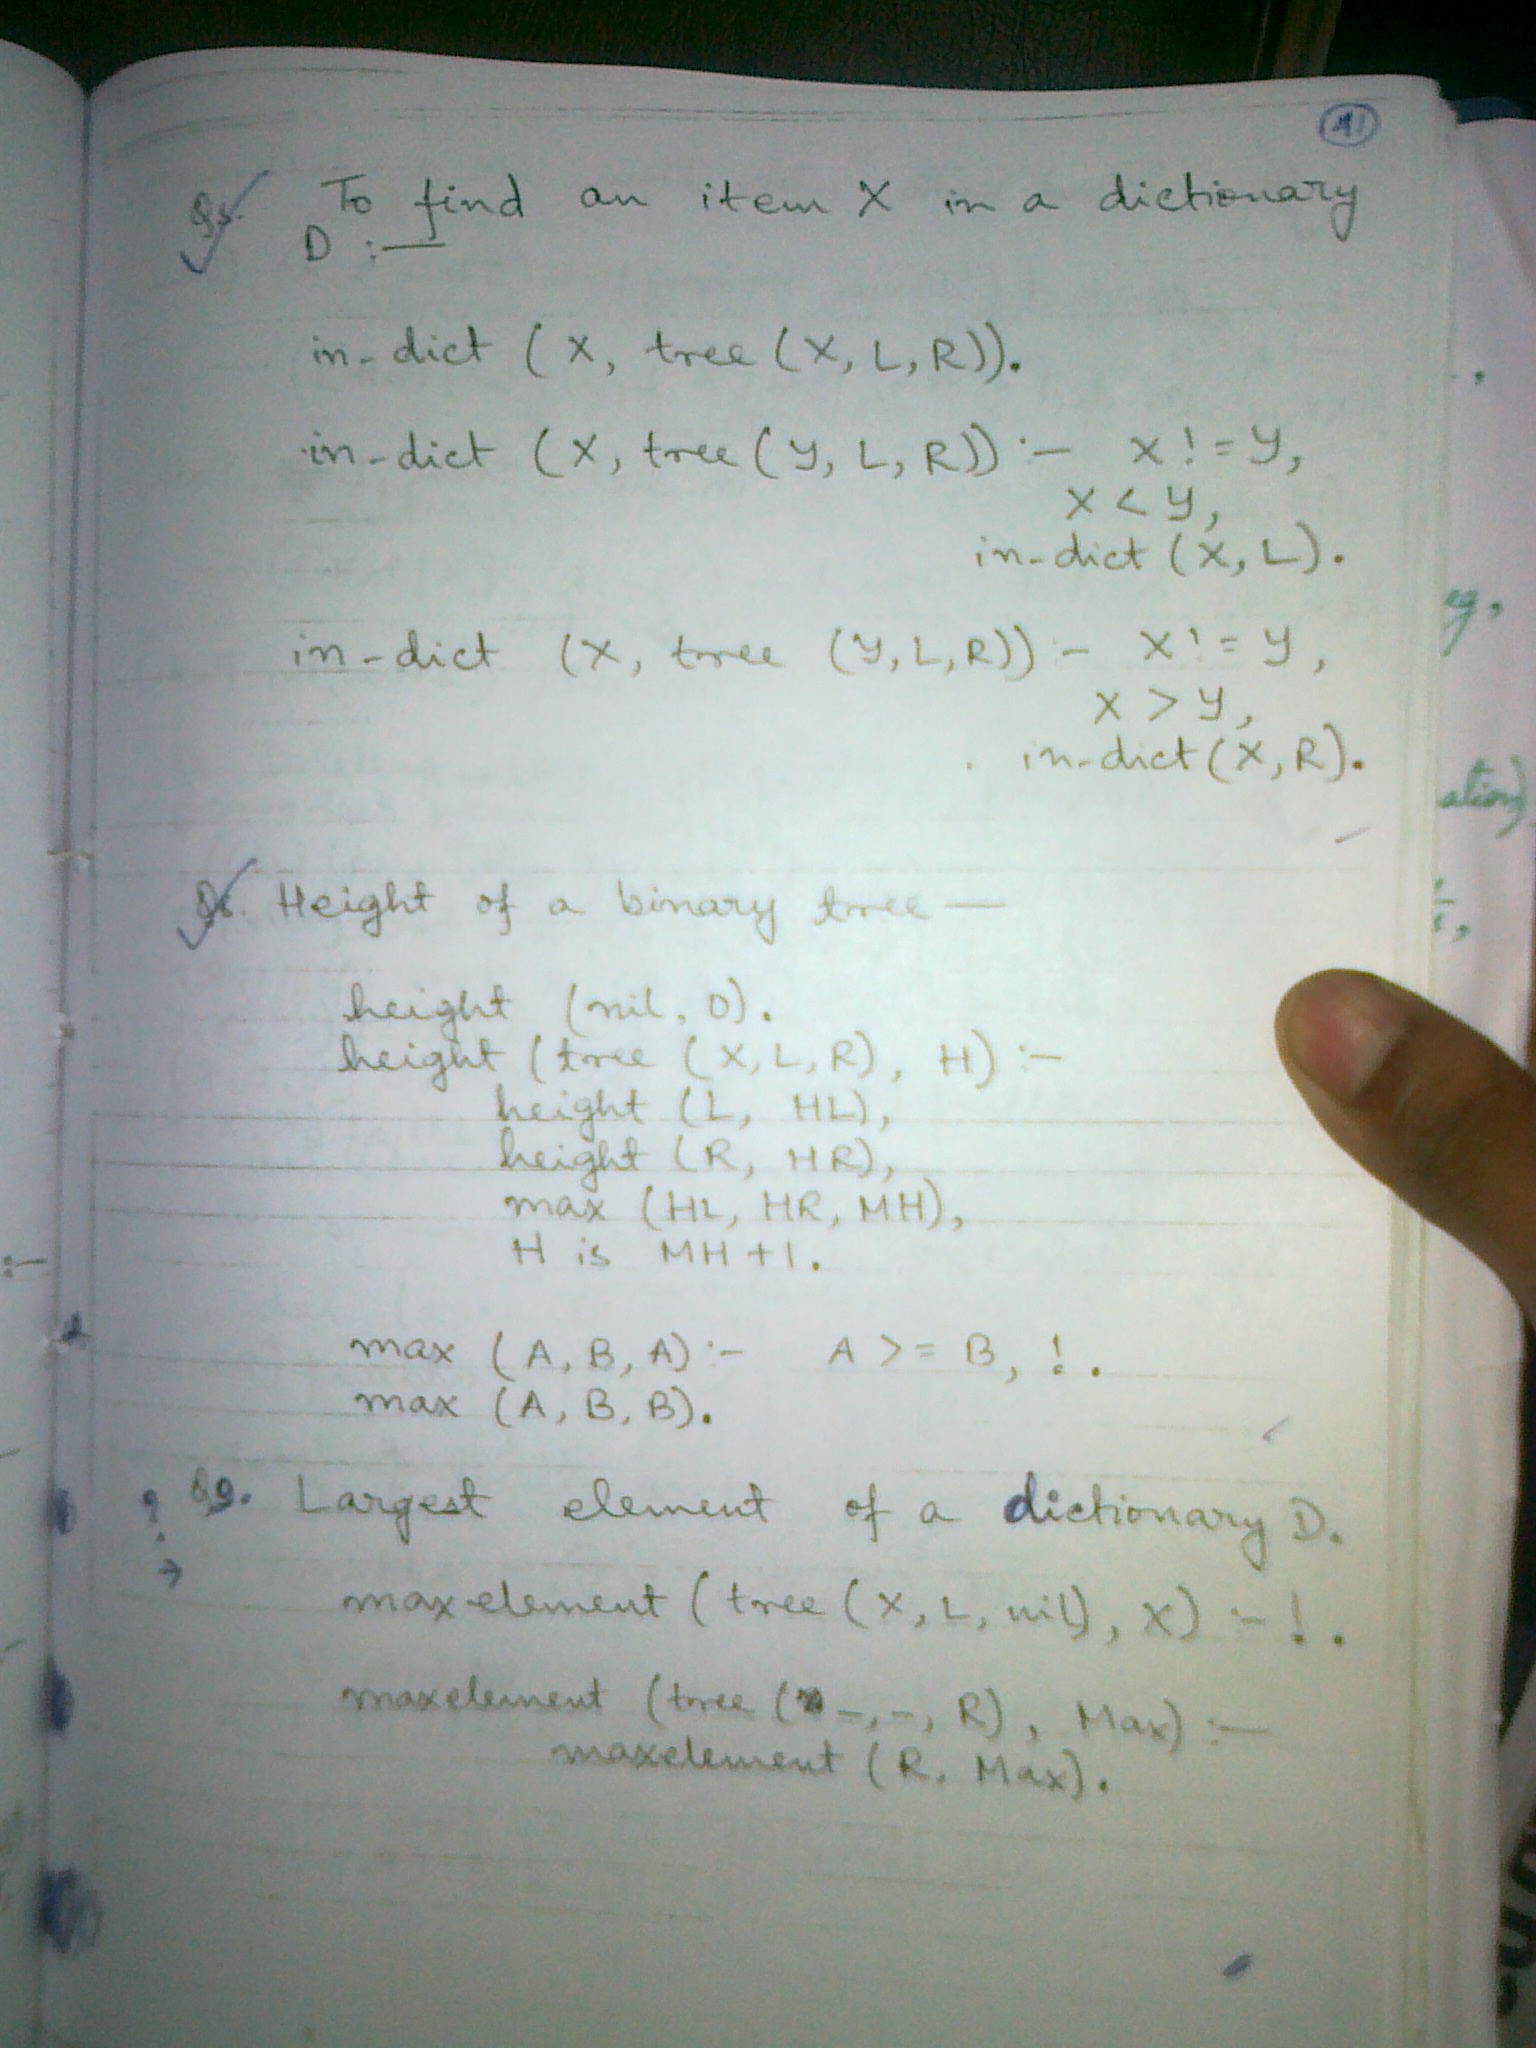 41
Q5. To find an item X in a dictionary
D :—
in-dict (X, tree (X, L, R)).
in-dict (X, tree (Y, L, R)) :- X != Y,
X < Y,
in-dict (X, L).
in-dict (X, tree (Y, L, R)) :- X != Y,
X > Y,
in-dict (X, R).
Height of a binary tree —
height (nil, 0).
height (tree (X, L, R), H) :-
height (L, HL),
height (R, HR),
max (HL, HR, MH),
H is MH + 1.
max (A, B, A) :- A >= B, !.
max (A, B, B).
? Q9. Largest element of a dictionary D.
→
maxelement (tree (X, L, nil), X) :- !.
maxelement (tree (_, _, R), Max) :-
maxelement (R, Max).
eg,
ation)